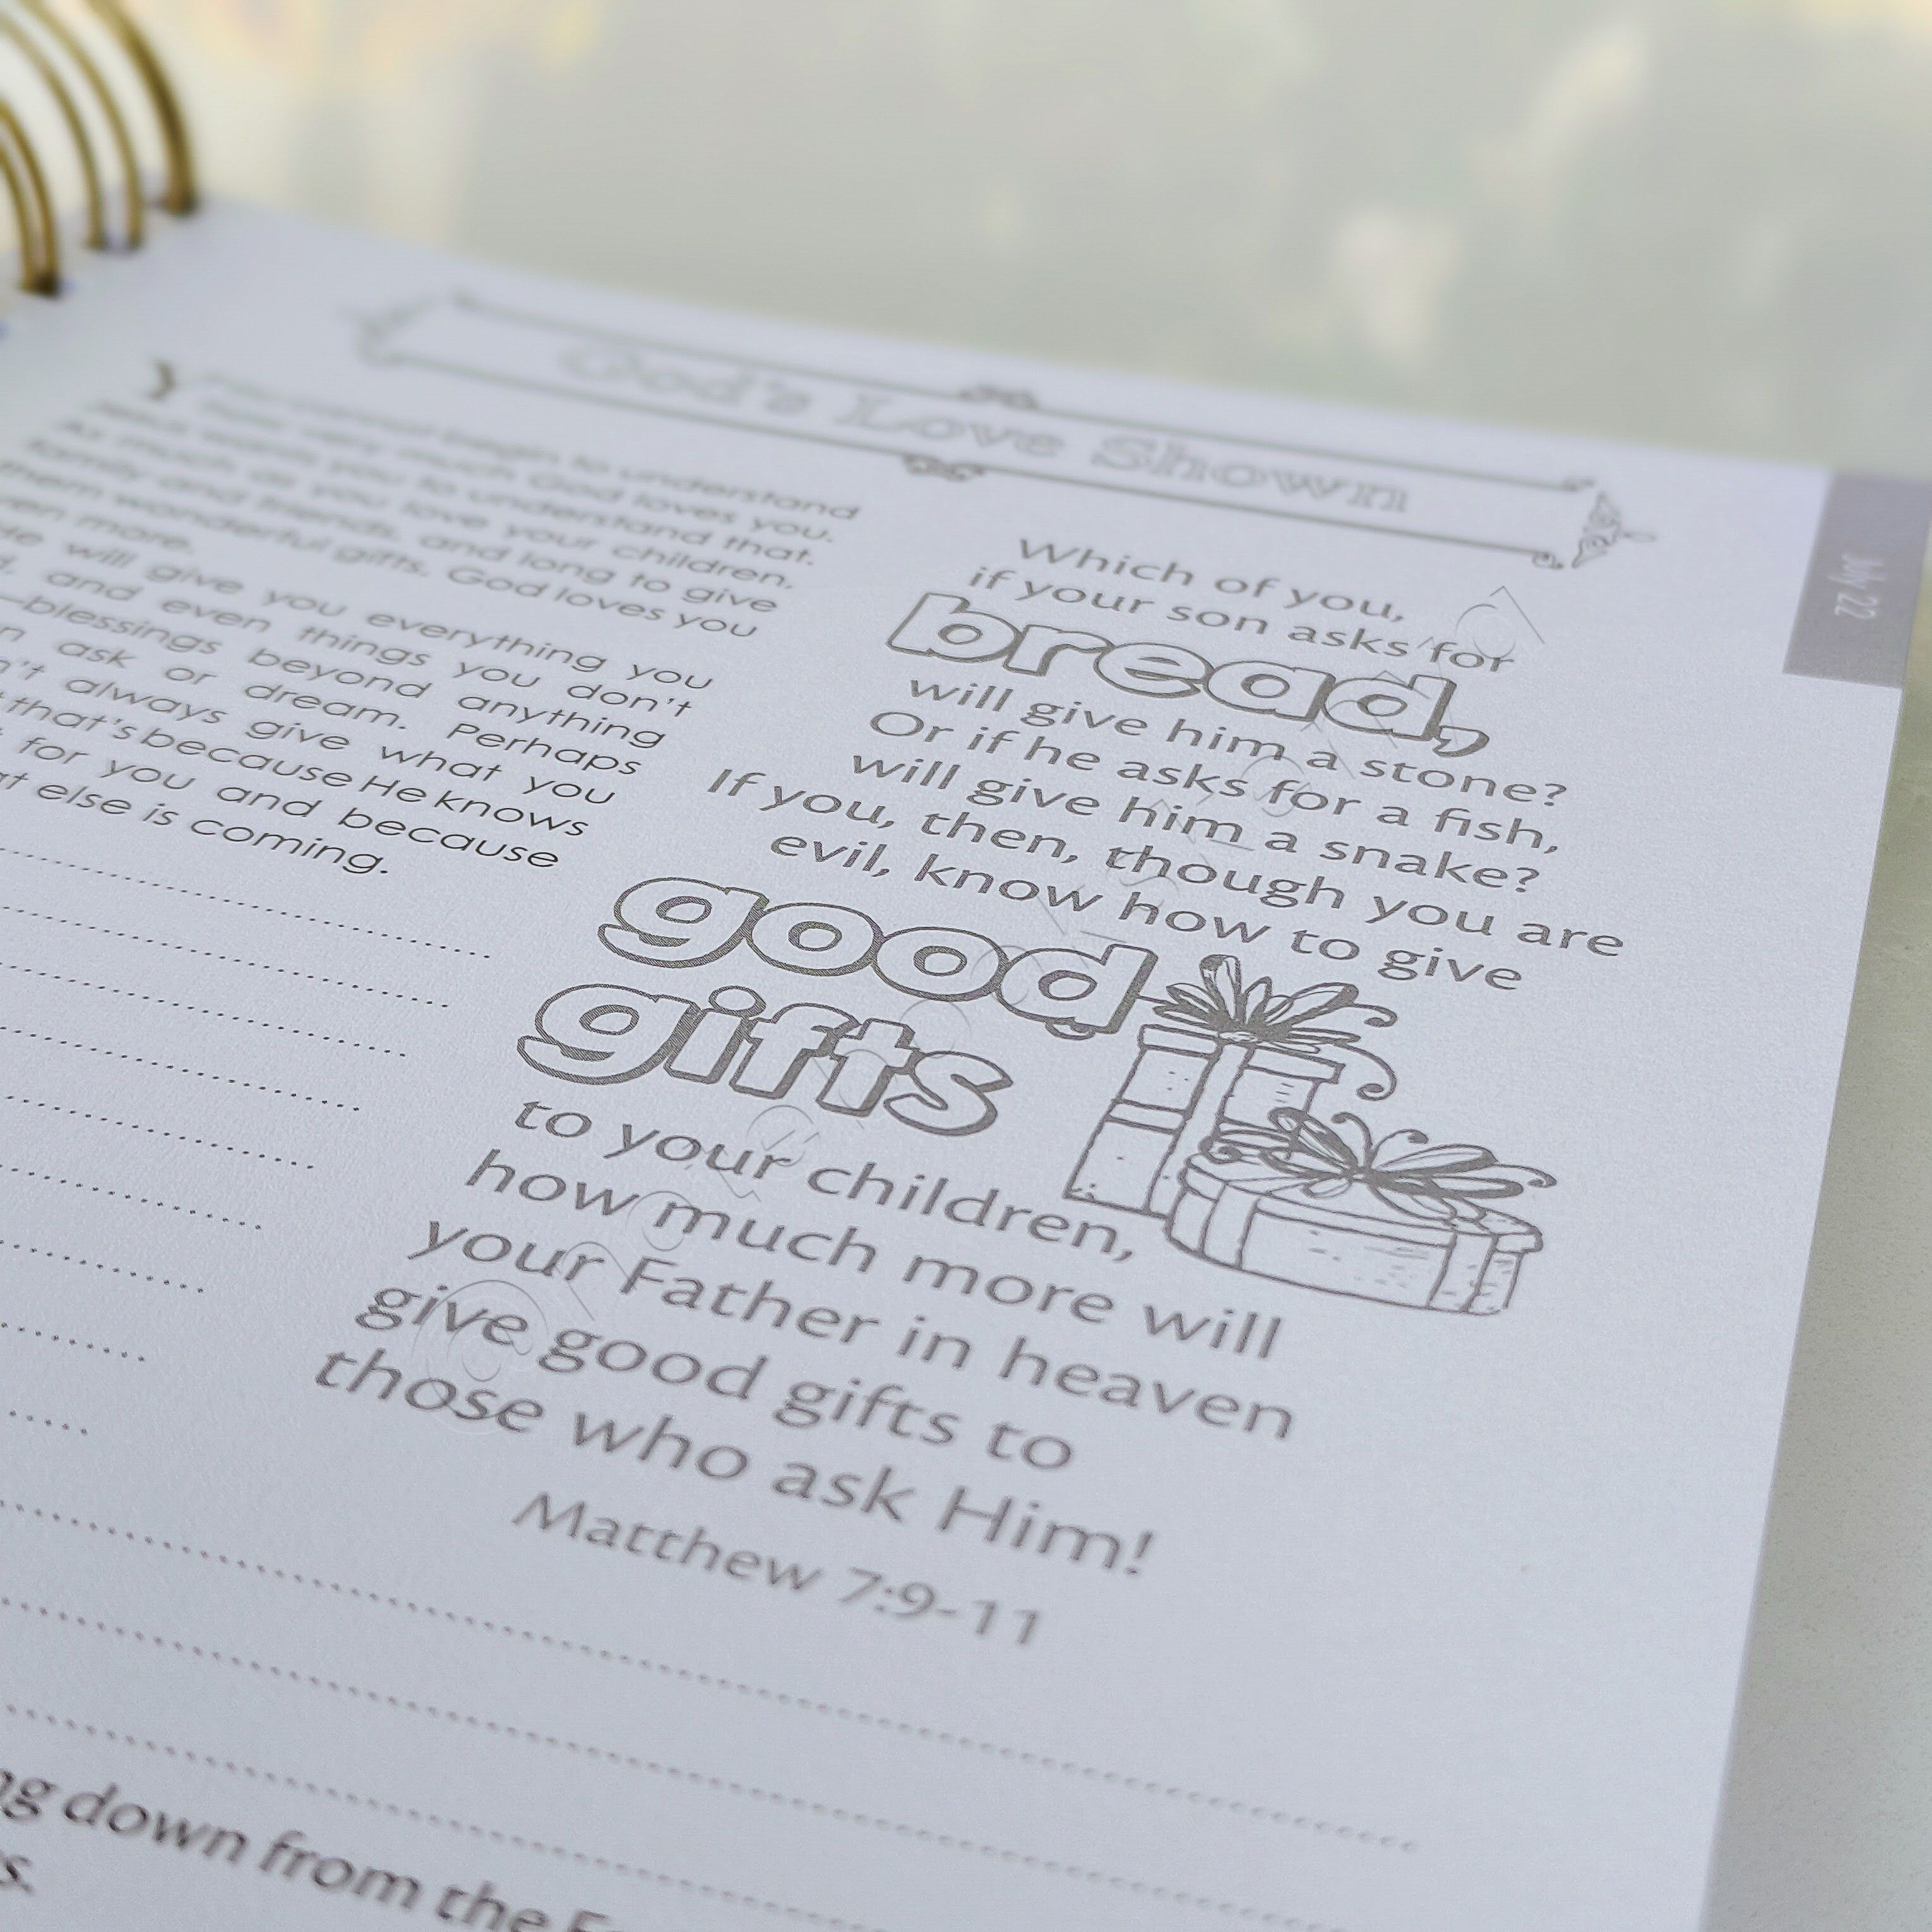 God's Love Shown
July 22
begin to understand
how very much God loves you.
Jesus wants you to understand that.
As much as you love your children,
family and friends, and long to give
them wonderful gifts, God loves you
even more.
He will give you everything you
and even things you don't
—blessings beyond anything
ask or dream. Perhaps
always give what you
that's because He knows
for you and because
else is coming.
Which of you,
if your son asks for
bread,
will give him a stone?
Or if he asks for a fish,
will give him a snake?
If you, then, though you are
evil, know how to give
good
gifts
to your children,
how much more will
your Father in heaven
give good gifts to
those who ask Him!
Matthew 7:9-11
down from the